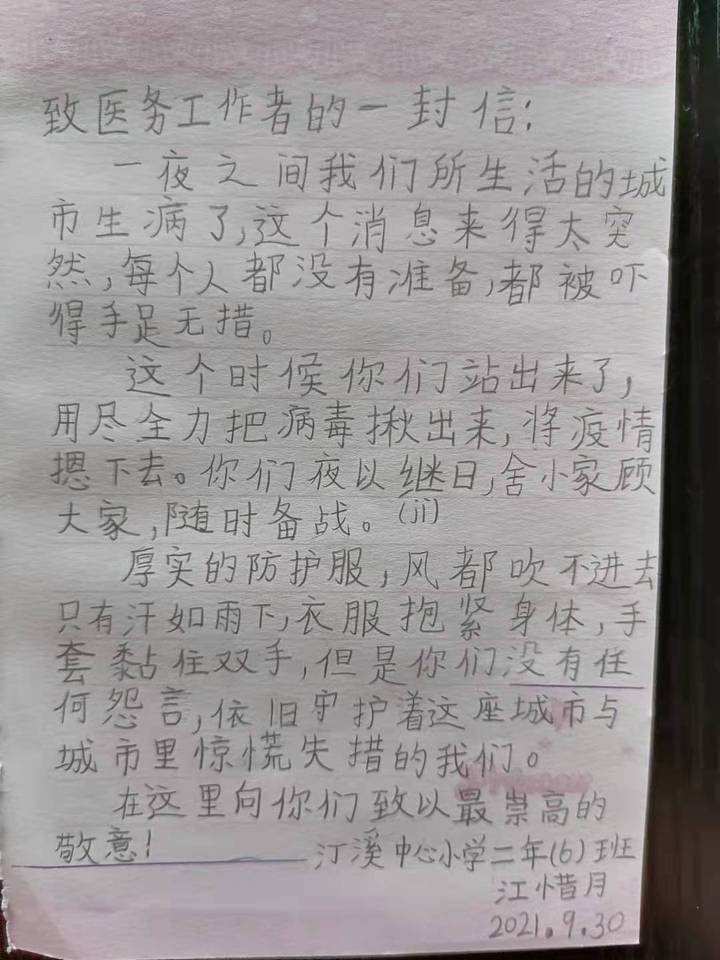 致医务工作者的一封信:
一夜之间我们所生活的城
市生病了,这个消息来得太突
然,每个人都没有准备,都被吓
得手足无措。
这个时候你们站出来了,
用尽全力把病毒揪出来,将疫情
摁下去。你们夜以继日,舍小家顾
大家,随时备战。(jì)
厚实的防护服,风都吹不进去
只有汗如雨下,衣服抱紧身体,手
套黏住双手,但是你们没有任
何怨言,依旧守护着这座城市与
城市里惊慌失措的我们。
在这里向你们致以最崇高的
敬意!
汀溪中心小学二年(6)班
江惜月
2021.9.30